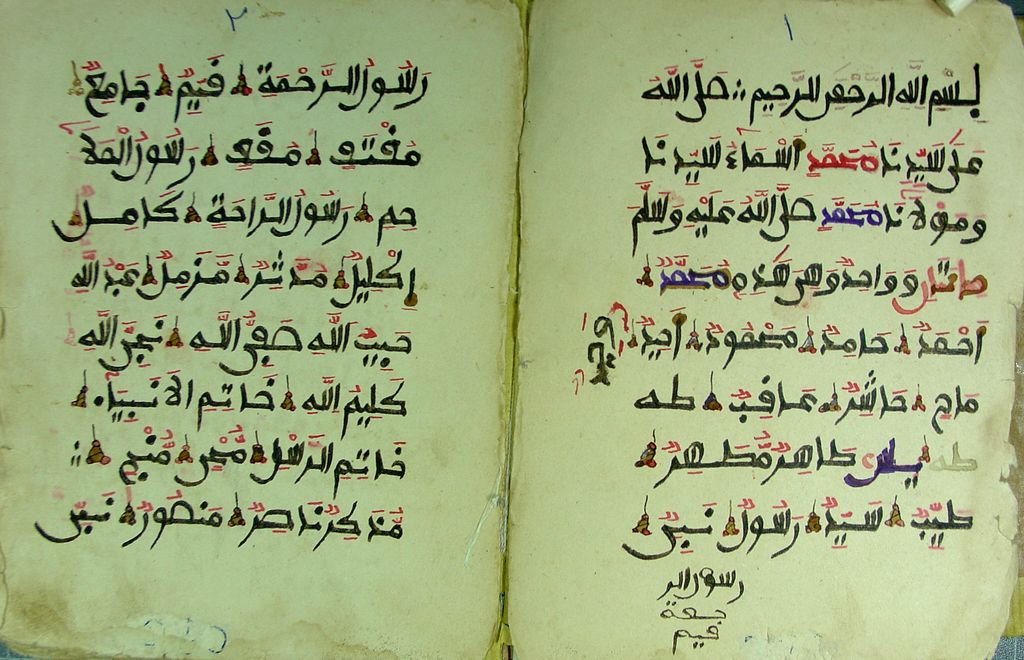 ١
بسم الله الرحمن الرحيم صلى الله
على سيدنا محمد أسماء سيدنا
ومولانا محمد صلى الله عليه وسلم
مائتان وواحد وهي هذه محمد
أحمد حامد محمود أحيد وحيد
ماح حاشر عاقب طه
طه يس طاهر مطهر
طيب سيد رسول نبي
رسول الر
حمة
قيم
٢
رسول الرحمة قيم جامع
مقتف مقفى رسول الملا
حم رسول الراحة كامل
إكليل مدثر مزمل عبد الله
حبيب الله صفي الله نجي الله
كليم الله خاتم الأنبياء
خاتم الرسل محي منج
مذكر ناصر منصور نبي